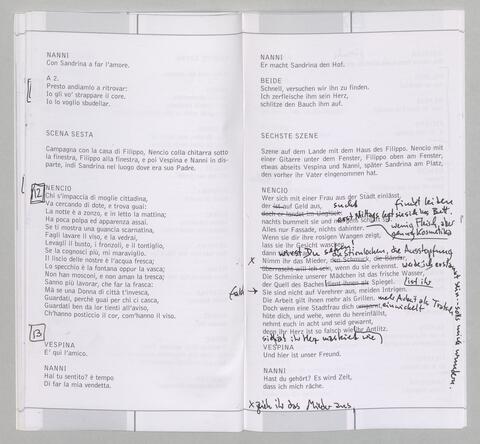 NANNI
Con Sandrina a far l'amore.
A 2.
Presto andiamlo a ritrovar:
Io gli vo' strappare il core.
Io lo voglio sbudellar.
SCENA SESTA
Campagna con la casa di Filippo, Nencio colla chitarra sotto
la finestra, Filippo alla finestra, e poi Vespina e Nanni in dis-
parte, indi Sandrina nel luogo dove era suo Padre.
12
NENCIO
Chi s'impaccia di moglie cittadina,
Va cercando di dote, e trova guai:
La notte è a zonzo, e in letto la mattina;
Ha poca polpa ed apparenza assai.
Se ti mostra una guancia scarnatina,
Fagli lavare il viso, e la vedrai,
Levagli il busto, i fronzoli, e il tontiglio,
Se la cognosci più, mi maraviglio.
Il liscio delle nostre è l'acqua fresca;
Lo specchio è la fontana oppur la vasca;
Non han morosi, e non aman la tresca;
Sanno più lavorar, che far la frasca:
Mà se una Donna di città t'invesca,
Guardati, perché guai per chi ci casca,
Guardati ben da lor tienti all'aviso,
Ch'hanno posticcio il cor, com'hanno il viso.
13
VESPINA
E' quì l'amico.
NANNI
Hai tu sentito? è tempo
Di far la mia vendetta.
NANNI
Er macht Sandrina den Hof.
BEIDE
Schnell, versuchen wir ihn zu finden.
Ich zerfleische ihm sein Herz,
schlitze den Bauch ihm auf.
SECHSTE SZENE
Szene auf dem Lande mit dem Haus des Filippo. Nencio mit
einer Gitarre unter dem Fenster, Filippo oben am Fenster,
etwas abseits Vespina und Nanni, später Sandrina am Platz,
den vorher ihr Vater eingenommen hat.
NENCIO
Wer sich mit einer Frau aus der Stadt einlässt,
der ist auf Geld aus, sucht findet Leiden
doch er landet im Unglück:
nachts bummelt sie und
Alles nur Fassade, nichts dahinter. wenig Fleisch, aber
Wenn sie dir ihre rosigen Wangen zeigt,
lass sie ihr Gesicht waschen
dann
Nimm ihr das Mieder, den Schmuck, die Bänder,
überrascht will ich sein, wenn du sie erkennst.
Die Schminke unserer Mädchen ist das frische Wasser,
der Quell des Baches dient ihnen als Spiegel. ist ihr
Sie sind nicht auf Verehrer aus, meiden Intrigen.
Die Arbeit gilt ihnen mehr als Grillen. mehr Arbeit als
Doch wenn eine Stadtfrau dich umgarnt, einwickelt
hüte dich, und wehe, wenn du hereinfällst,
nehmt euch in acht und seid gewarnt,
denn ihr Herz ist so falsch wie ihr Antlitz.
VESPINA
Und hier ist unser Freund.
NANNI
Hast du gehört? Es wird Zeit,
dass ich mich räche.
x zieh ihr das Mieder aus,